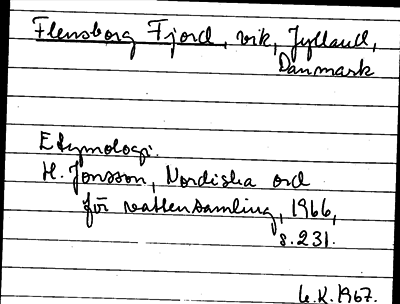 Flensborg Fjord, vik, Jylland,
Danmark
Etymologi.
H. Jonsson, Nordiska ord
för vattensamling, 1966,
s. 231.
1967.